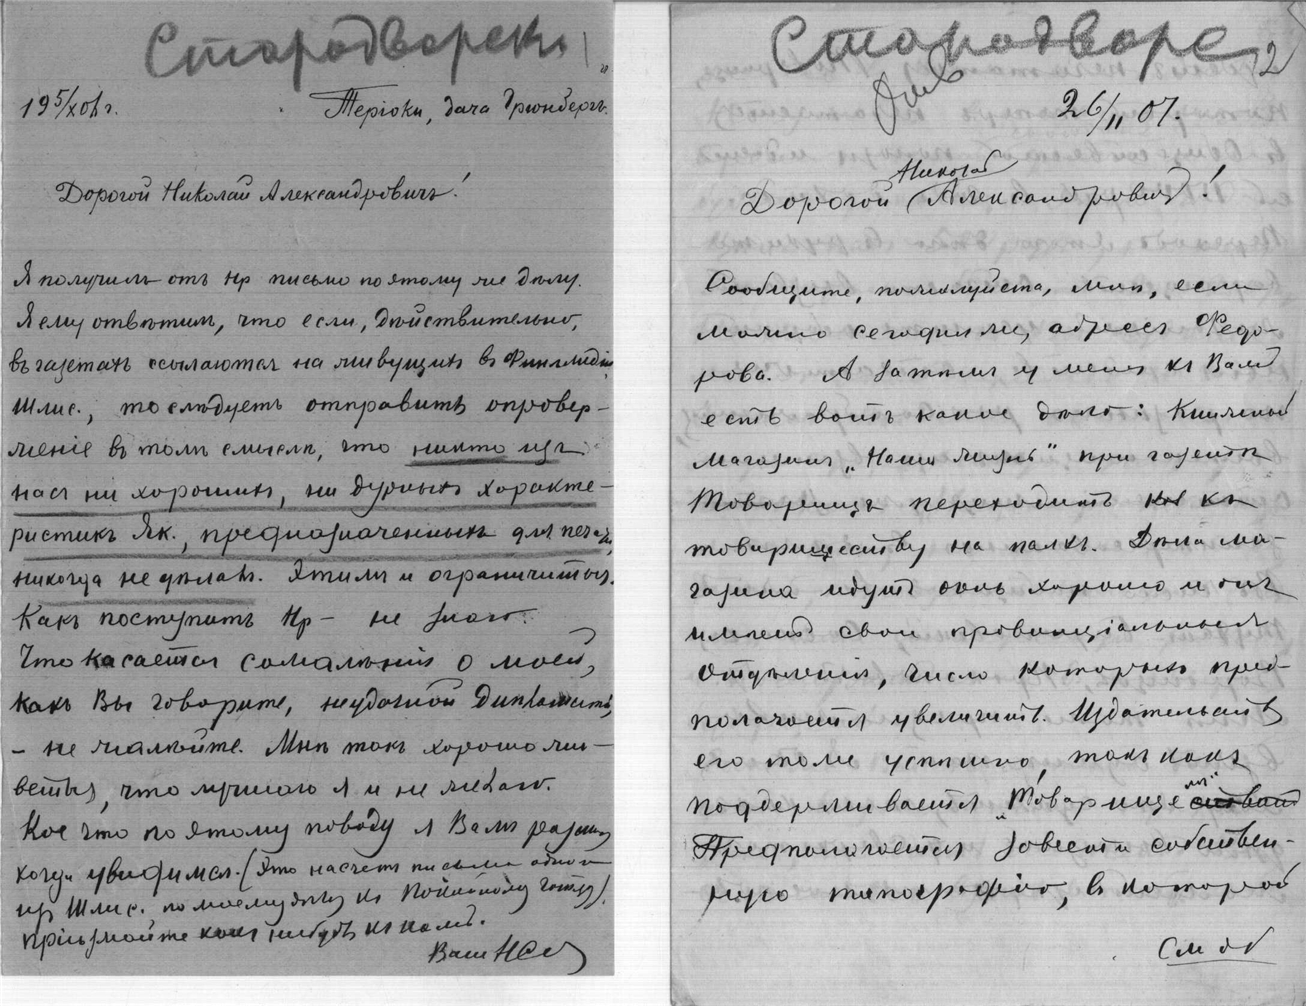 Стародворски
19 5/XII 06 г.
Терiоки, дача Грюнбергъ.
Дорогой Николай Александровичъ!
Я получилъ отъ Нр письмо по этому же дѣлу.
Я ему отвѣтилъ, что если, дѣйствительно,
въ газетахъ ссылаются на живущихъ въ Финляндiи
Шлис., то слѣдуетъ отправить опровер-
женiе въ томъ смыслѣ, что никто изъ
насъ ни хорошихъ, ни дурныхъ характе-
ристикъ Як., предназначенныхъ для печати,
никогда не дѣлалъ. Этимъ и ограничиться.
Какъ поступитъ Нр – не знаю.
Что касается сожалѣнiя о моей,
какъ Вы говорите, неудачной
– не жалѣйте. Мнѣ такъ хорошо жи-
вется, что лучшаго я и не желаю.
Кое что по этому поводу я Вамъ разскажу
когда увидимся. (Это насчетъ письма одного
изъ Шлис. по моему дѣлу къ
Прiѣзжайте какъ нибудь къ намъ.
Ваш НСт
Стародворс
2
26/II 07.
Николай
Дорогой Александровичъ!
Сообщите, пожалуйста, мнѣ, если
можно сегодня же, адресъ Федо-
рова. А затѣмъ у меня къ Вамъ
есть вотъ какое дѣло: Книжный
магазинъ „Наша жизнь" при газетѣ
Товарищъ переходитъ къ
товариществу на паяхъ. Дѣла ма-
газина идутъ очень хорошо и онъ
имѣетъ свои провинцiальныя
отдѣленiя, число которыхъ пред-
полагается увеличить. Издательство
его тоже успѣшно, такъ какъ
поддерживается „Товарищемъ"
Предполагается завести собствен-
ную типографiю, въ которой
См об